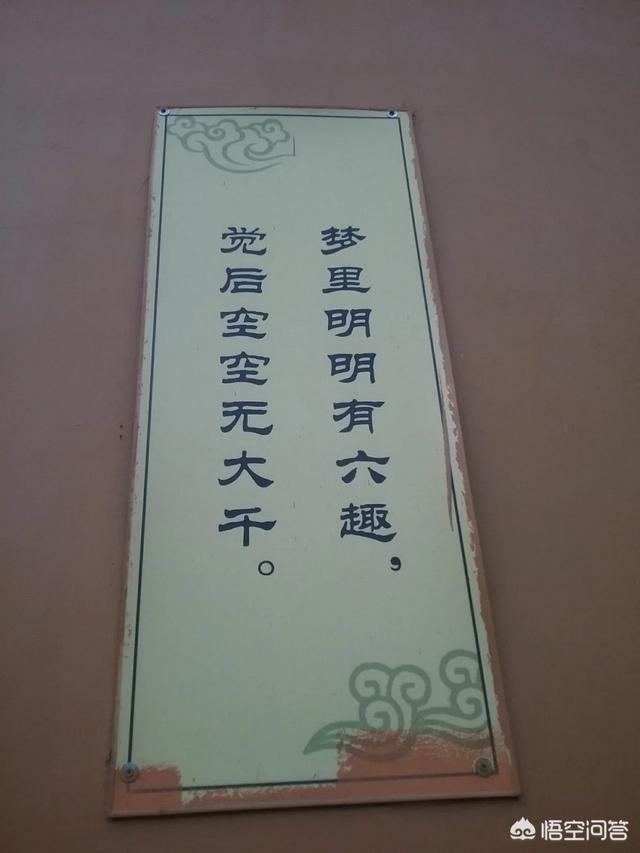 梦里明明有六趣，
觉后空空无大千。
悟空问答